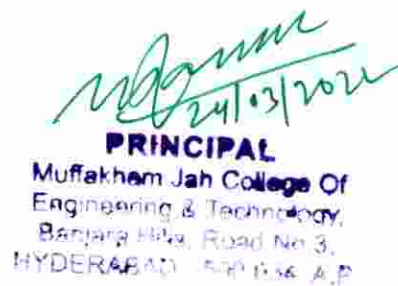 24/03/202
PRINCIPAL
Muffakham Jah College Of
Engineering & Technology,
Banjara Hills, Road No 3,
HYDERABAD A.P